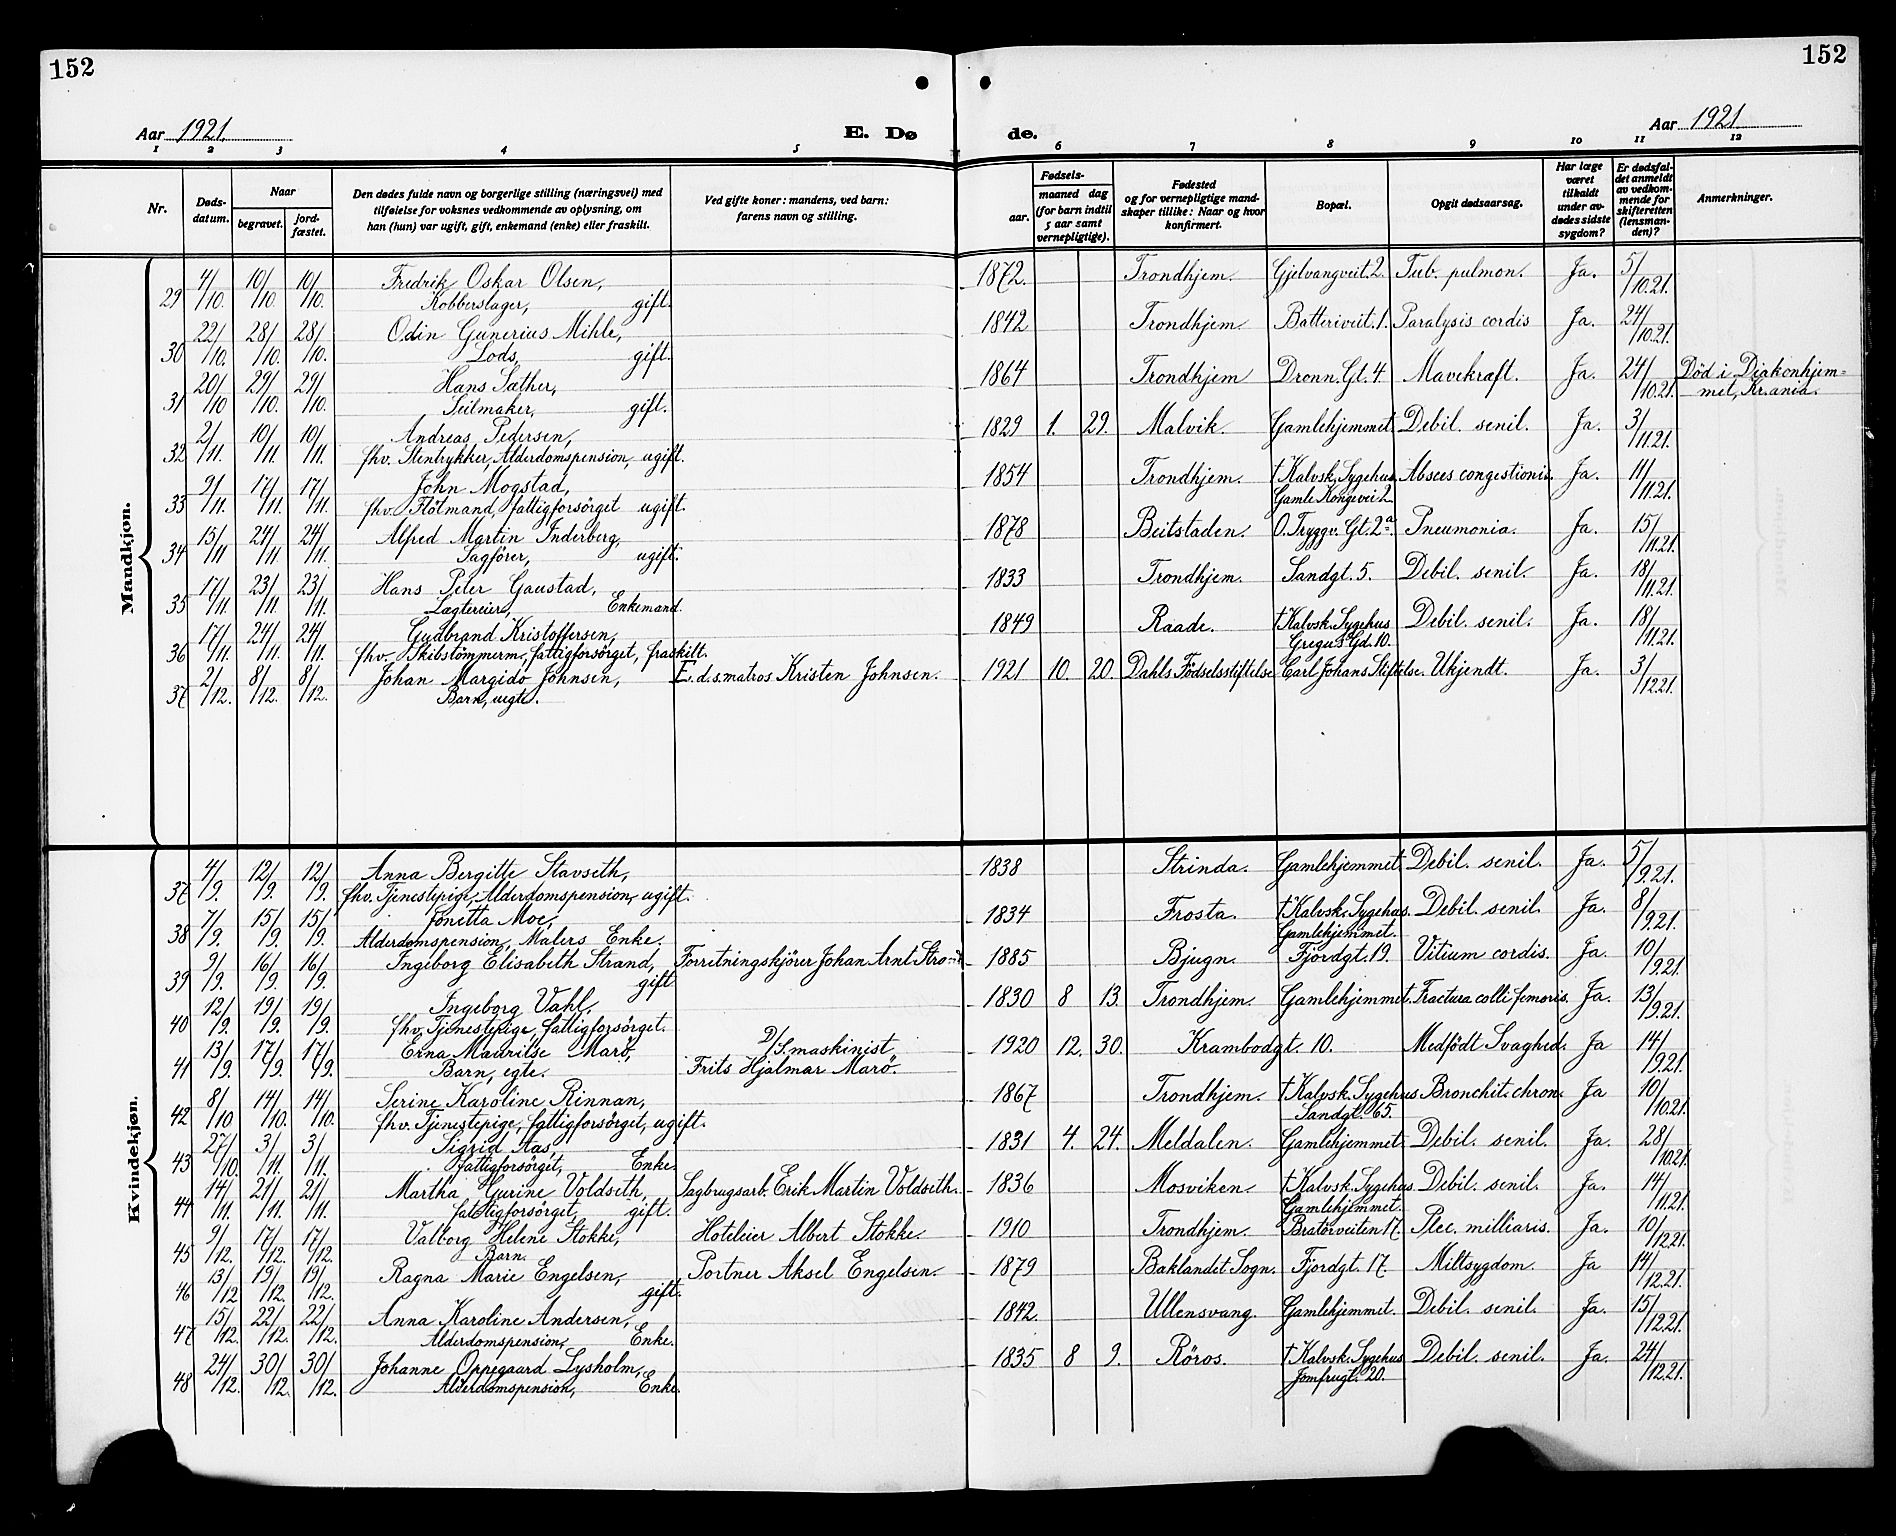 152
152
Aar 1921.
E. Dø
de.
Aar 1921.
1 2 3 4 5 6 7 8 9 10 11 12
Nr.
Døds-
datum.
Naar
begravet.
jord-
fæstet.
Den dødes fulde navn og borgerlige stilling (næringsvei) med
tilføielse for voksnes vedkommende av oplysning, om
han (hun) var ugift, gift, enkemand (enke) eller fraskilt.
Ved gifte koner: mandens, ved barn:
farens navn og stilling.
Fødsels-
aar.
maaned dag
(for barn indtil
5 aar samt
vernepligtige).
Fødested
og for vernepligtige mand-
skaper tillike: Naar og hvor
konfirmert.
Bopæl.
Opgit dødsaarsag.
Har læge
været
tilkaldt
under av-
dødes sidste
sygdom?
Er dødsfal-
det anmeldt
av vedkom-
mende for
skifteretten
(lensman-
den)?
Anmerkninger.
Mandkjøn.
29 4/10. 10/10. 10/10. Fredrik Oskar Olsen, 1872. Trondhjem. Gjelvangveit. 2. Tub. pulmon. Ja. 5/10.21.
Kobberslager, gift.
30 22/10. 28/10. 28/10. Odin Gunerius Mihle, 1842 Trondhjem. Batteriveit. 1. Paralysis cordis Ja. 24/10.21.
Lods, gift.
31 20/10 29/10. 29/10. Hans Sæther, 1864 Trondhjem Dronn. Gt. 4 Mavekræft. Ja. 24/10.21. Død i Diakonhjem=
Seilmaker, gift. met, Kr.ania.
32 2/11. 10/11. 10/11. Andreas Pedersen, 1829 1. 29. Malvik. Gamlehjemmet. Debil. senil. Ja. 3/11.21.
fhv. Stentrykker, Alderdomspension, ugift.
33 9/11. 17/11. 17/11. John Mogstad, 1854 Trondhjem. † Kalvsk. Sygehus. Absces congestionis. Ja. 11/11.21.
fhv. Flötmand, fattigforsörget ugift. Gamle Kongevei 2
34 15/11 24/11. 24/11. Alfred Martin Inderberg, 1878 Beitstaden. O. Tryggv. Gt. 2a Pneumonia. Ja. 15/11.21.
Sagförer, ugift.
35 17/11. 23/11. 23/11. Hans Peter Gaustad, 1833 Trondhjem. Sandgt. 5. Debil. senil. Ja. 18/11.21.
Lægtereier, Enkemand.
36 17/11. 24/11. 24/11. Gudbrand Kristoffersen, 1849 Raade. † Kalvsk. Sygehus Debil. senil. Ja. 18/11.21.
fhv. Skibstömmerm., fattigforsörget, fraskilt. Gregus Gd. 10.
37 2/12. 8/12. 8/12. Johan Margido Johnsen, E. d. s. matros Kristen Johnsen. 1921 10. 20. Dahls Födselsstiftelse Carl Johans Stiftelse. Ukjendt. Ja. 3/12.21.
Barn, uegte.
Kvindekjøn.
37 4/9. 12/9. 12/9. Anna Bergitte Stavseth, 1838 Strinda. Gamlehjemmet. Debil. senil. Ja. 5/9.21.
fhv. Tjenestepige, Alderdomspension, ugift.
38 7/9. 15/9. 15/9. Jonetta Moe, 1834 Frosta. † Kalvsk. Sygehus. Debil. senil. Ja. 8/9.21.
Alderdomspension, Malers Enke. Gamlehjemmet.
39 9/9. 16/9. 16/9. Ingeborg Elisabeth Strand, Forretningskjörer Johan Arnt Strand 1885 Bjugn. Fjordgt. 19. Vitium cordis. Ja. 10/9.21.
gift
40 12/9. 19/9. 19/9. Ingeborg Vahl, 1830 8 13. Trondhjem. Gamlehjemmet. Fractura colli femoris. Ja. 13/9.21.
fhv. Tjenestepige, fattigforsörget.
41 13/9. 17/9. 17/9. Erna Mauritse Marö, D/S. maskinist 1920 12. 30. Krambodgt. 10. Medfödt Svaghed. Ja 14/9.21.
Barn, egte. Frits Hjalmar Marö.
42 8/10 14/10. 14/10. Serine Karoline Rinnan, 1867 Trondhjem. † Kalvsk. Sygehus Bronchit. chron. Ja 10/10.21.
fhv. Tjenestepige, fattigforsörget, ugift. Sandgt. 65.
43 27/10. 3/11. 3/11. Sigrid Aas, 1831 4. 24. Meldalen. Gamlehjemmet. Debil. senil. Ja. 28/10.21.
fattigforsörget, Enke.
44 14/11. 21/11. 21/11. Martha Gurine Voldseth, Sagbrugsarb. Erik Martin Voldseth. 1836 Mosviken. † Kalvsk. Sygehus Debil. senil. Ja. 14/11.21.
fattigforsörget, gift. Gamlehjemmet.
45 9/12. 17/12. 17/12. Valborg Helene Stokke, Hoteleier Albert Stokke. 1910 Trondhjem. Bratörveiten 17. Plec. milliaris. Ja. 10/12.21.
Barn.
46 13/12 19/12. 19/12. Ragna Marie Engelsen, Portner Aksel Engelsen. 1879 Baklandet Sogn. Fjordgt. 17. Miltsygdom. Ja 14/12.21.
gift.
47 15/12. 22/12. 22/12. Anna Karoline Andersen, 1842. Ullensvang. Gamlehjemmet. Debil. senil. Ja. 15/12.21.
Alderdomspension, Enke.
48 24/12. 30/12. 30/12. Johanne Oppegaard Lysholm, 1835 8 9. Röros. † Kalvsk. Sygehus Debil. senil. Ja. 24/12.21.
Alderdomspension, Enke. Jomfrugt. 20.